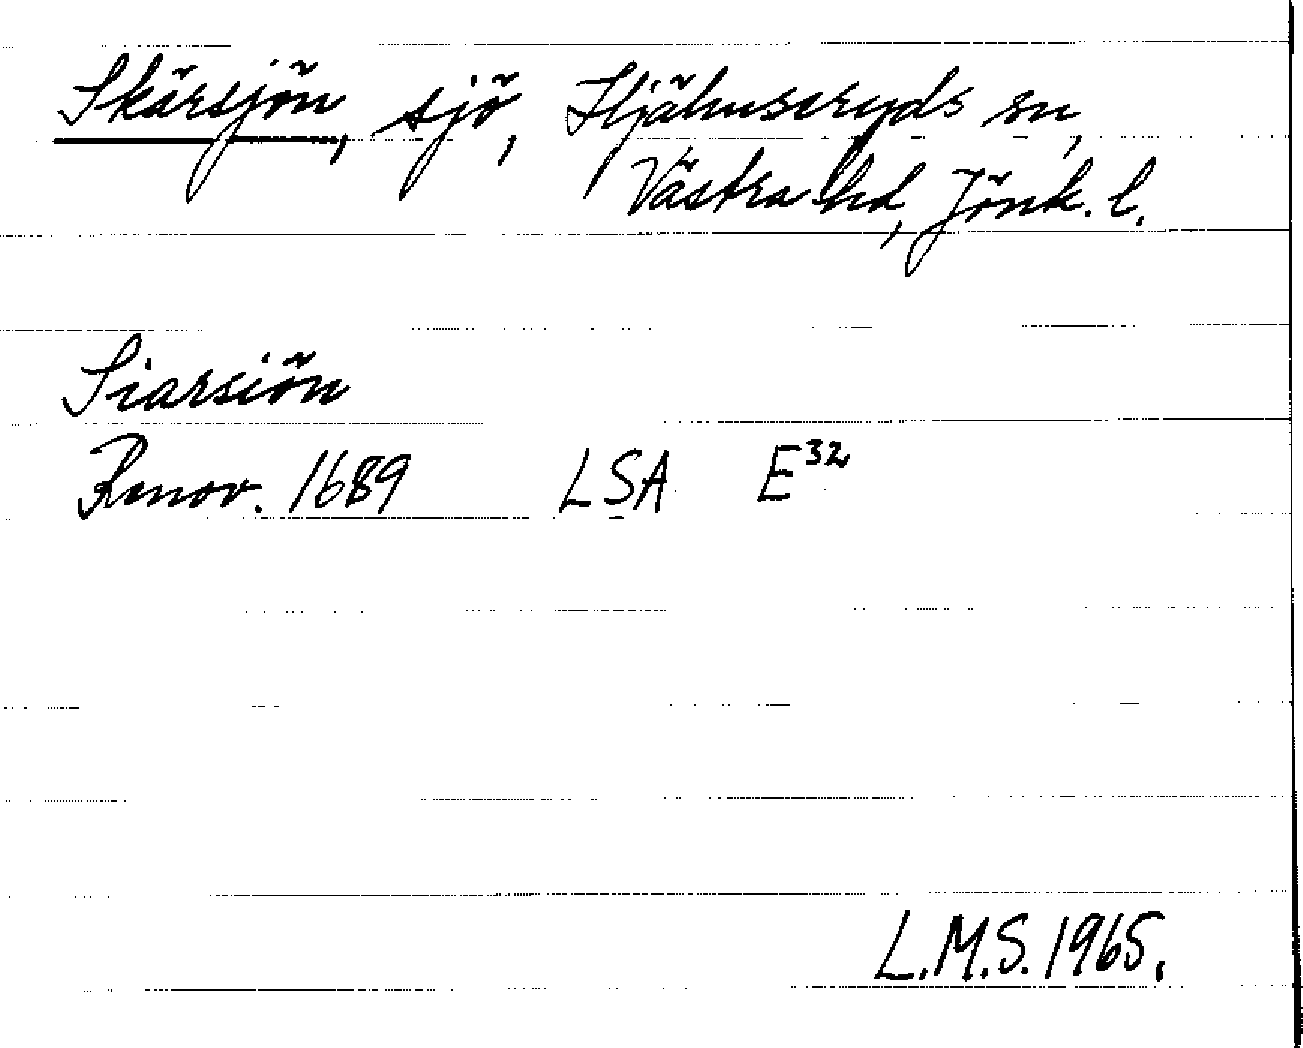 Skärsjön, sjö, Hjälmseryds sn,
Västra hd, Jönk. l.
Siarsiön
Renov. 1689 LSA E32
L.M.S. 1965.